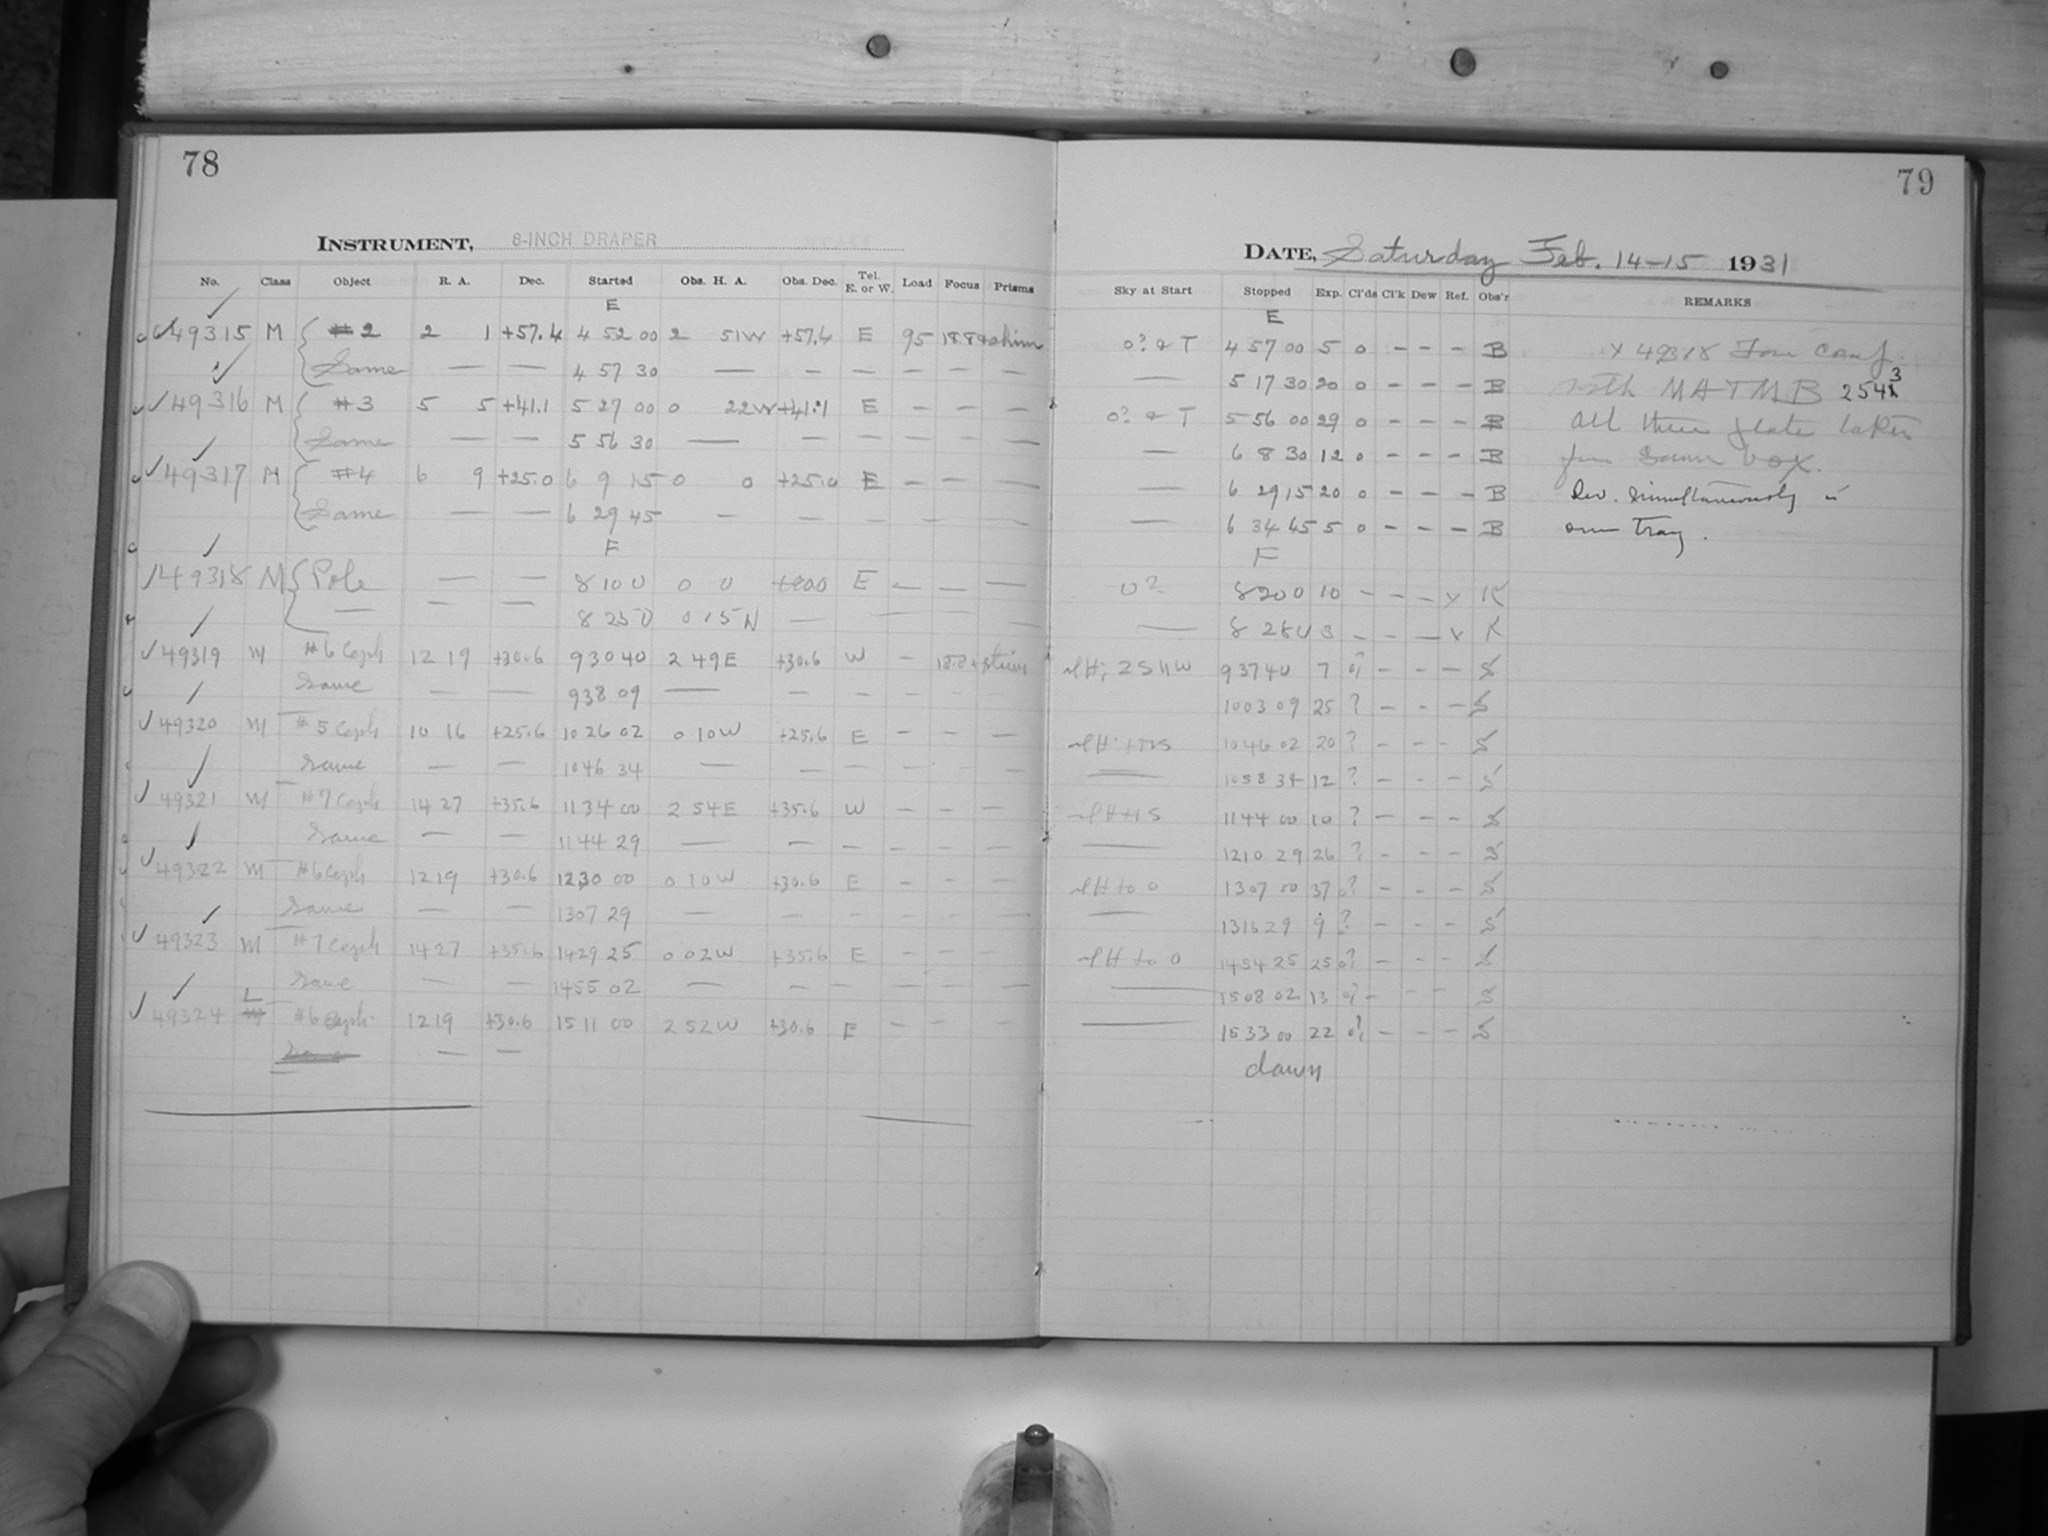 78
INSTRUMENT, 8-INCH DRAPER
No. Class Object R. A. Dec. Started Obs. H. A. Obs. Dec. Tel. E. or W. Load Focus Prisms
E
49315 M #2 2 1 +57.4 4 52 00 2 51W +57.4 E 95
Same — — 4 57 30 — — — — — —
49316 M #3 5 5 +41.1 5 27 00 0 22W +41.1 E — — —
Same — — 5 56 30 — — — — — —
49317 M #4 6 9 +25.0 6 9 15 0 0 +25.0 E — — —
Same — — 6 29 45 — — — — — —
49318 M Pole — — 8 10 0 0 0 E — — —
— — — 8 25 0 0 15 —
49319 M #6 Ceph 12 19 +30.6 9 30 40 2 49E +30.6 W —
Same — — 9 38 09 — — — — — —
49320 M #5 Ceph 10 16 +25.6 10 26 02 0 10W +25.6 E — — —
Same — — 10 46 34 — — — — — —
49321 M #7 Ceph 14 27 +35.6 11 34 00 2 54E +35.6 W — — —
Same — — 11 44 29 — — — — — —
49322 M #6 Ceph 12 19 +30.6 12 30 00 0 10W +30.6 E — — —
Same — — 13 07 29 — — — — — —
49323 M #7 Ceph 14 27 +35.6 14 29 25 0 02W +35.6 E — — —
Same — — 14 55 02 — — — — — —
49324 L #6 Ceph 12 19 +30.6 15 11 00 2 52W +30.6 E — — —
— —
79
DATE, Saturday Feb. 14-15 1931
Sky at Start Stopped Exp. Cl'ds Cl'k Dew Ref. Obs'r REMARKS
E
0? & T 4 57 00 5 0 — — — B 49318 for conf.
— 5 17 30 20 0 — — — B with MATMB 2543
0? & T 5 56 00 29 0 — — — B All three plates taken
— 6 8 30 12 0 — — — B from same box.
— 6 29 15 20 0 — — — B Dev. simultaneously in
— 6 34 45 5 0 — — — B one tray.
0? 8 20 0 10 — — — v K
— 8 28 0 3 — — — v K
9 37 40 7 0? — — — S
10 03 09 25 ? — — — S
10 46 02 20 ? — — — S
— 10 58 34 12 ? — — — S
11 44 00 10 ? — — — S
— 12 10 29 26 ? — — — S
to 0 13 07 00 37 0? — — — S
— 13 16 29 9 ? — — — S
to 0 14 54 25 25 0? — — — S
— 15 08 02 13 0? — — — S
— 15 33 00 22 0? — — — S
dawn